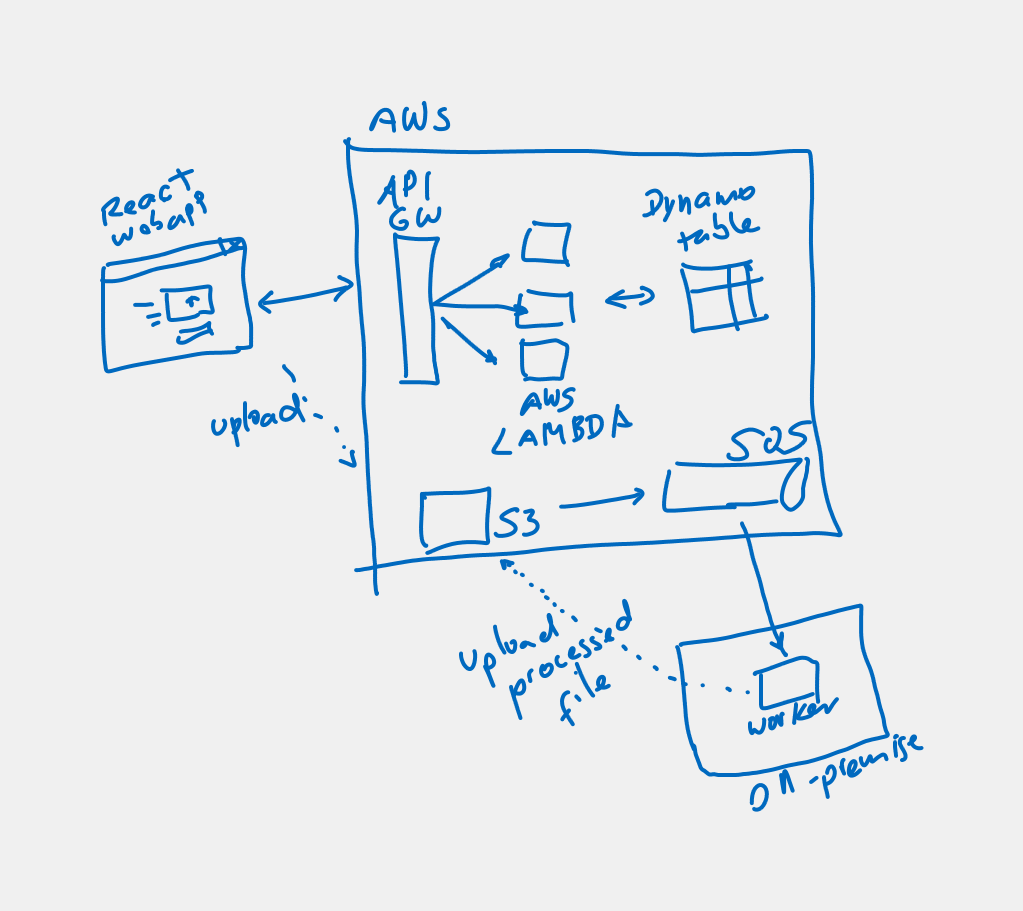 AWS
React
webapi
API
GW
Dynamo
table
AWS
LAMBDA
upload
SQS
S3
upload
processed
file
worker
ON-premise